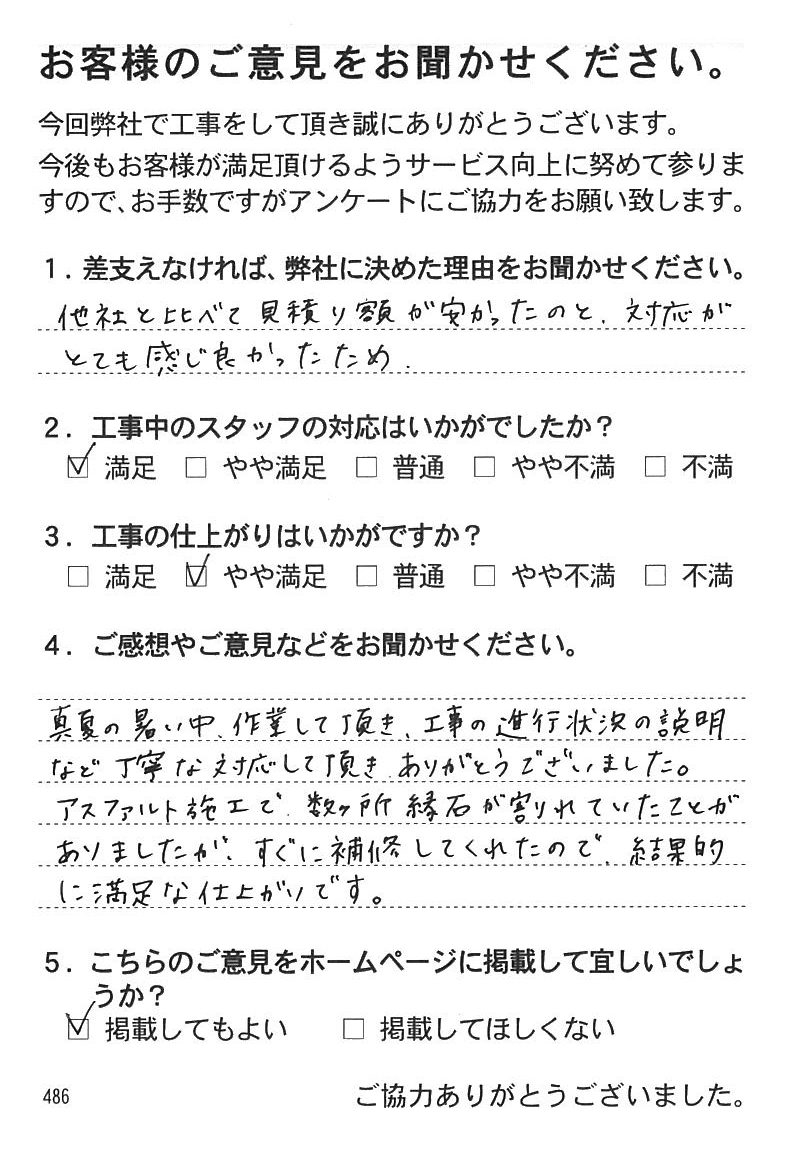 お客様のご意見をお聞かせください。
今回弊社で工事をして頂き誠にありがとうございます。
今後もお客様が満足頂けるようサービス向上に努めて参りま
すので、お手数ですがアンケートにご協力をお願い致します。
1. 差支えなければ、弊社に決めた理由をお聞かせください。
他社と比べて見積り額が安かったのと、対応が
とても感じ良かったため.
2. 工事中のスタッフの対応はいかがでしたか？
☑ 満足 □ やや満足 □ 普通 □ やや不満 □ 不満
3. 工事の仕上がりはいかがですか？
□ 満足 ☑ やや満足 □ 普通 □ やや不満 □ 不満
4. ご感想やご意見などをお聞かせください。
真夏の暑い中、作業して頂き、工事の進行状況の説明
など丁寧な対応して頂きありがとうございました。
アスファルト施工で、数ヶ所縁石が割れていたことが
ありましたが、すぐに補修してくれたので、結果的
に満足な仕上がりです。
5. こちらのご意見をホームページに掲載して宜しいでしょ
うか？
☑ 掲載してもよい □ 掲載してほしくない
486 ご協力ありがとうございました。